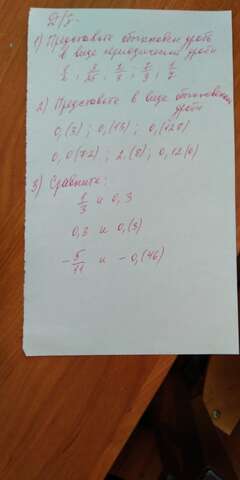 Д/з.
1) Представьте обыкновен. дробь
в виде периодической дроби
1/3 ; 1/7
2) Представьте в виде обыкновенной
дроби
0,(3) ; 0,(13) ; 0,(120)
0,0(72) ; 2,(8) ; 0,12(6)
3) Сравните:
1/3 и 0,3
0,3 и 0,(3)
-5/11 и -0,(46)